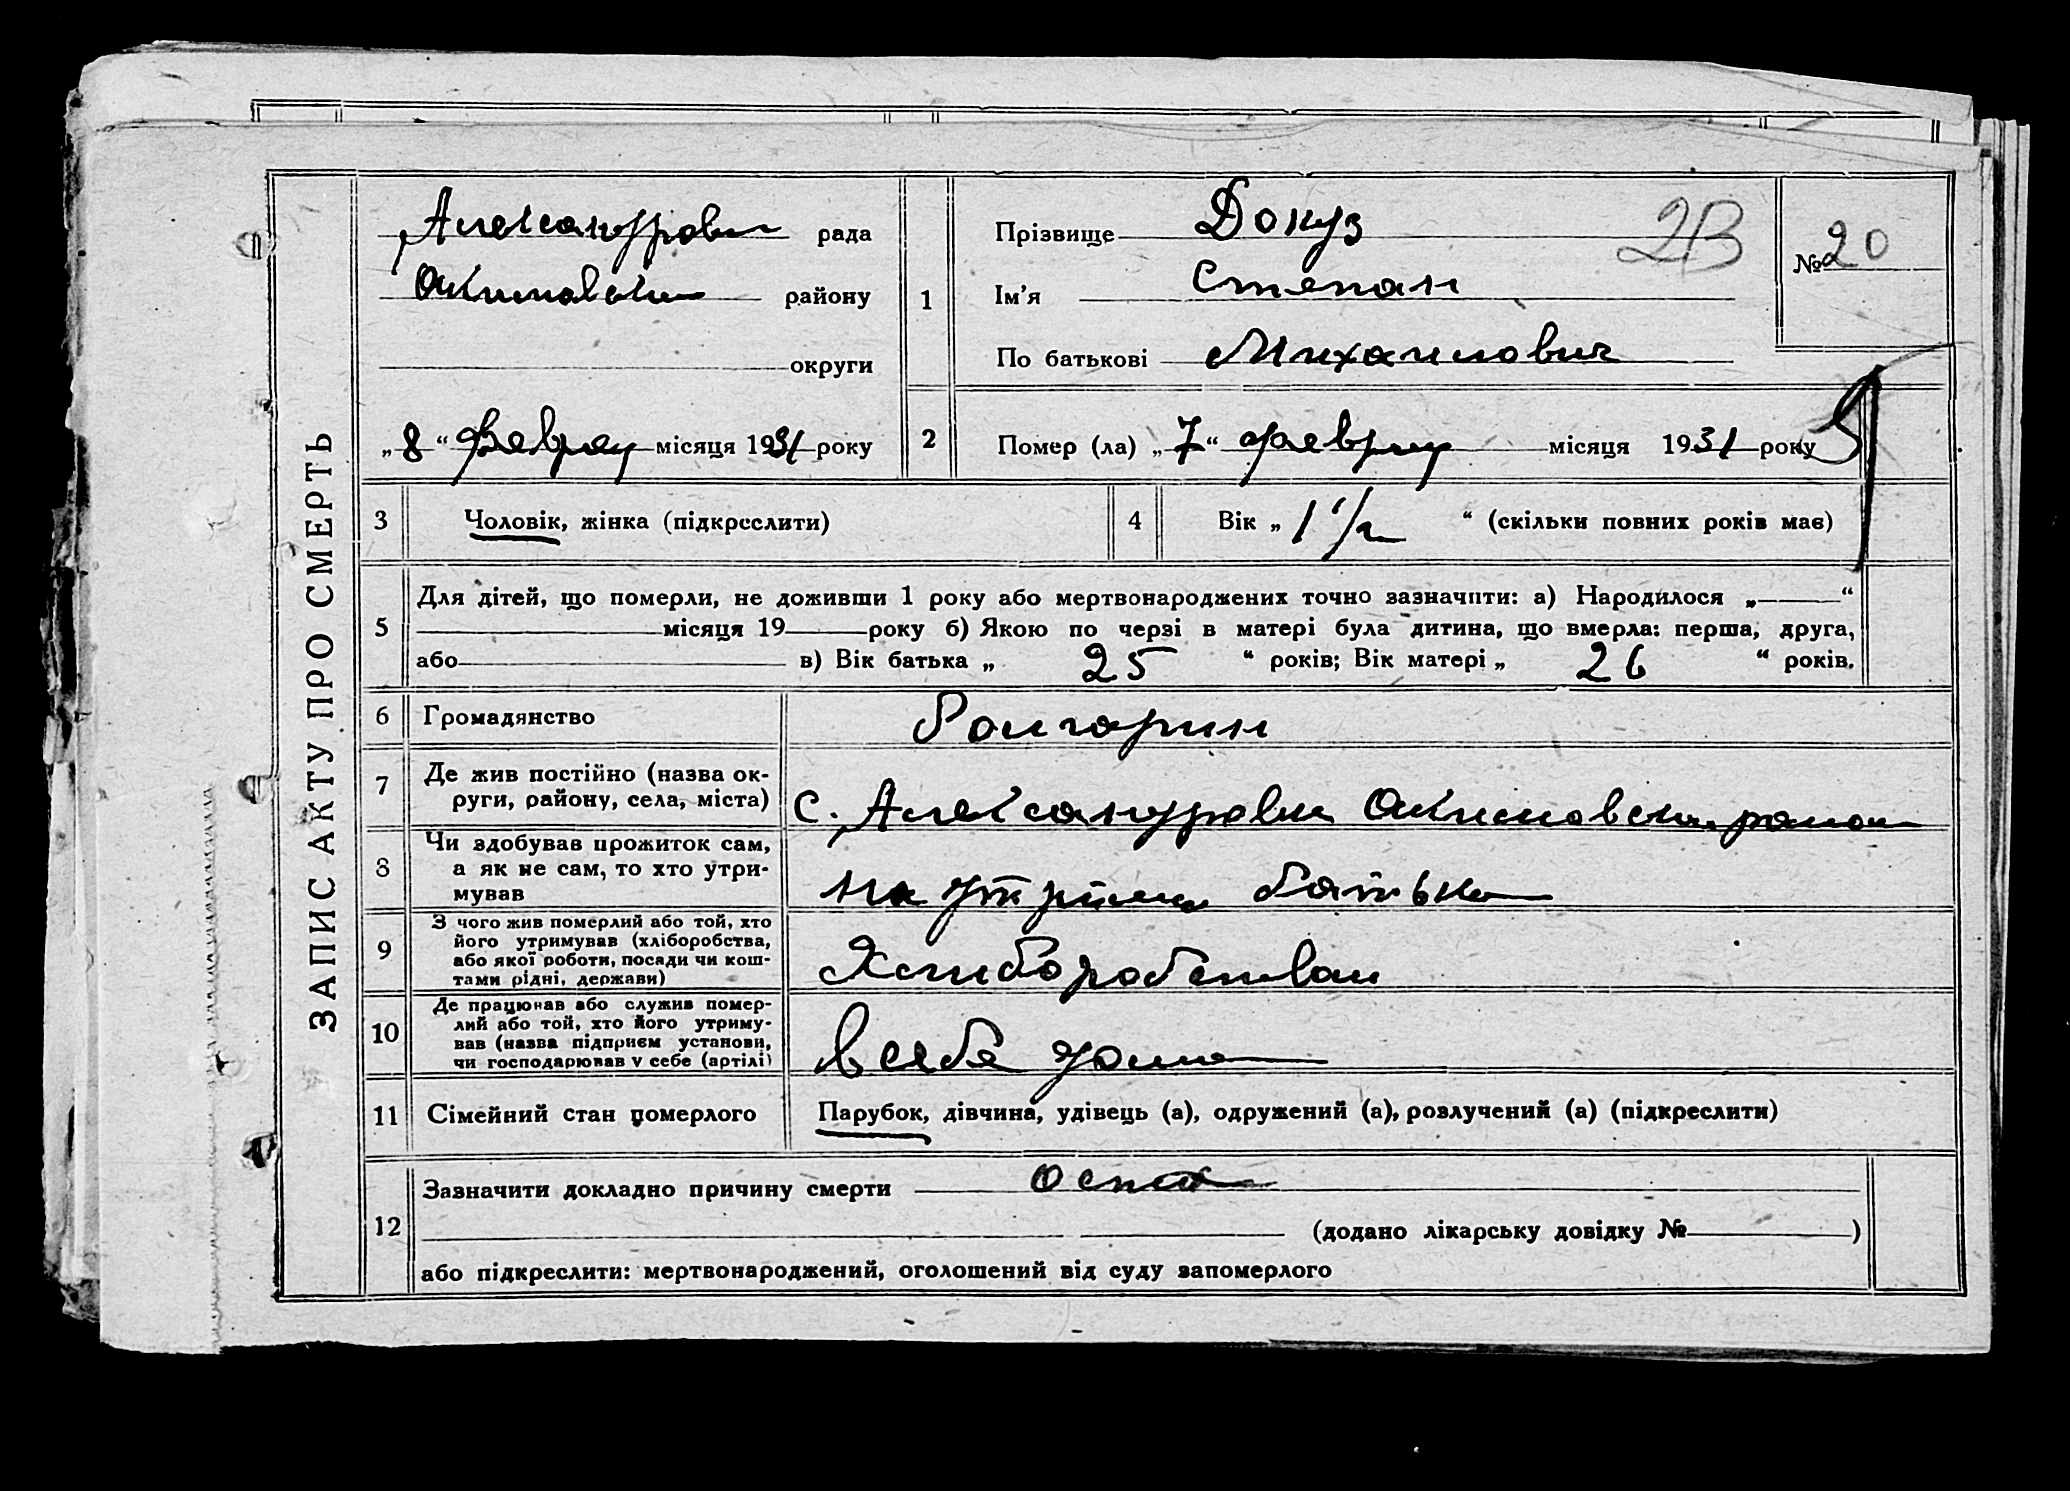 ЗАПИС АКТУ ПРО СМЕРТЬ
Александровка рада
Акимовский району
округи
„8“ Феврал місяця 1931 року
1
Прізвище Докуз
Ім'я Степан
По батькові Михаилович
2В
№ 20
2
Помер (ла) „7“ феврал місяця 1931 року
3
Чоловік, жінка (підкреслити)
4
Вік „1 1/2“ (скільки повних років має)
5
Для дітей, що померли, не доживши 1 року або мертвонароджених точно зазначити: а) Народилося „ “
місяця 19 року б) Якою по черзі в матері була дитина, що вмерла: перша, друга,
або в) Вік батька „ 25 “ років; Вік матері „ 26 “ років.
6
Громадянство
Болгарин
7
Де жив постійно (назва ок-
руги, району, села, міста)
с. Александровка Акимовский район
8
Чи здобував прожиток сам,
а як не сам, то хто утри-
мував
На утриман батька
9
З чого жив померлий або той, хто
його утримував (хліборобства,
або якої роботи, посади чи кош-
тами рідні, держави)
10
Де працював або служив помер-
лий або той, хто його утриму-
вав (назва підприєм установи,
чи господарював у себе (артілі)
в себе дома
11
Сімейний стан померлого
Парубок, дівчина, удівець (а), одружений (а), розлучений (а) (підкреслити)
12
Зазначити докладно причину смерти Оспа
(додано лікарську довідку № )
або підкреслити: мертвонароджений, оголошений від суду запомерлого